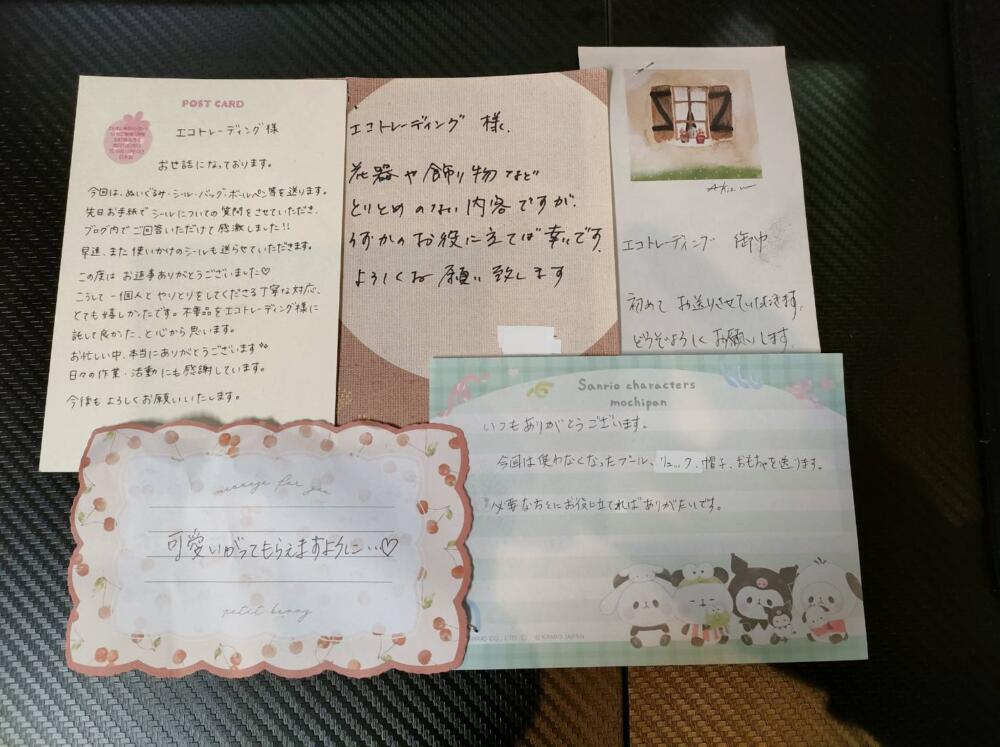 POST CARD
エコトレーディング様
お世話になっております。
今回は、ぬいぐるみ・シール・バッグ・ボールペン等を送ります。
先日お手紙でシールについての質問をさせていただき、
ブログ内でご回答いただけて感激しました!!
早速、また使いかけのシールも送らせていただきます。
この度はお返事ありがとうございました♡
こうして一個人とやりとりをしてくださる丁寧な対応、
とても嬉しかったです。不要品をエコトレーディング様に
託して良かった、と心から思います。
お忙しい中、本当にありがとうございます
日々の作業・活動にも感謝しています。
今後もよろしくお願いいたします。
エコトレーディング 様
花器や飾り物など
とりとめのない内容ですが、
何かのお役に立てば幸いです。
よろしくお願い致します
エコトレーディング 御中
初めてお送りさせていただきます。
どうぞよろしくお願いします。
Sanrio characters
mochipan
いつもありがとうございます。
今回は使わなくなったプール、リュック、帽子、おもちゃを送ります。
必要な方とにお役に立てればありがたいです。
CO., LTD. © KAMIO JAPAN
message for you
可愛いがってもらえますように…♡
petit berry